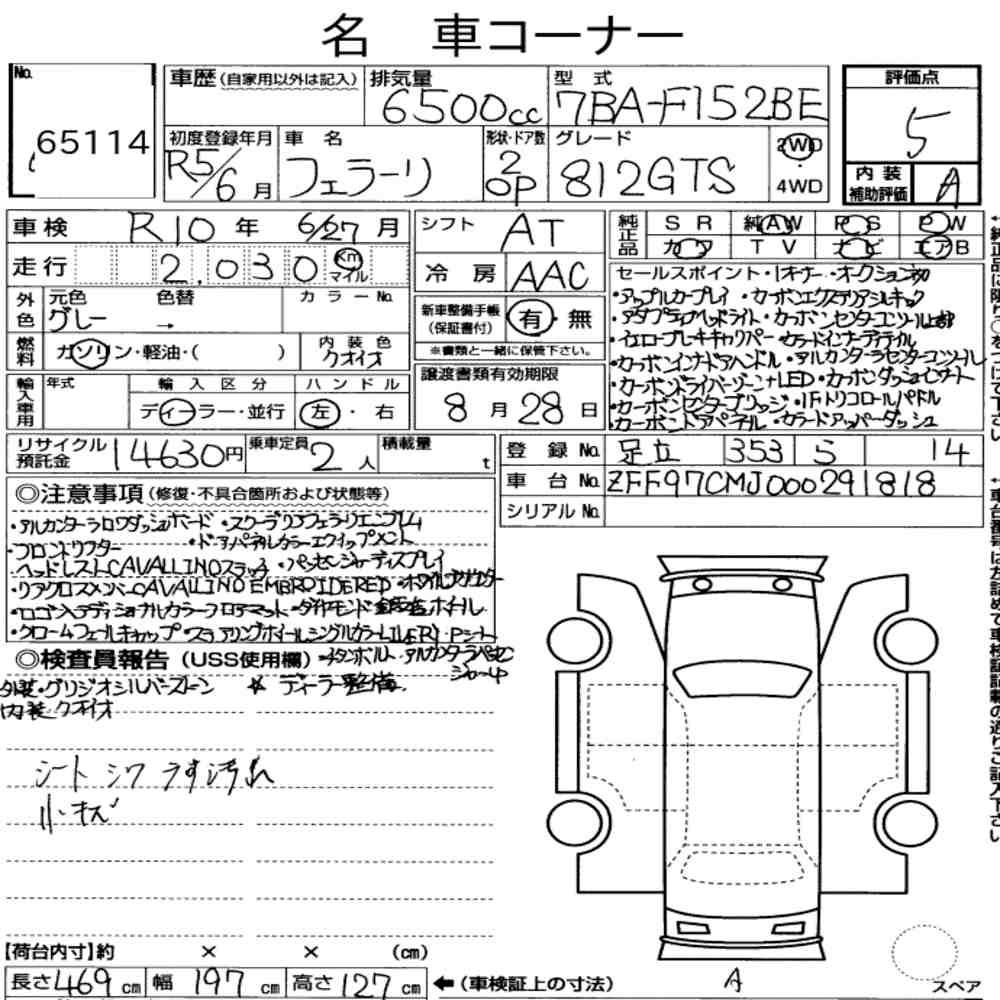 名車コーナー
No.
65114
車歴 (自家用以外は記入)
排気量
6500cc
型式
7BA-F152BE
評価点
5
初度登録年月
R5/6月
車名
フェラーリ
形状・ドア数
2
OP
グレード
812GTS
2WD
4WD
内装
補助評価
A
車検 R10年 6/27月
シフト AT
純正品
SR 純AW PS PW
カワ TV ナビ エアB
走行 2,030 Km
マイル
冷房 AAC
外色
元色 色替 カラーNo.
グレー →
新車整備手帳
(保証書付)
有・無
※書類と一緒に保管下さい。
燃料
ガソリン・軽油・( )
内装色
クオイオ
輸入車用
年式
輸入区分
ディーラー・並行
ハンドル
左・右
譲渡書類有効期限
8月28日
セールスポイント・1オーナー・オークション初
・アップルカープレイ・カーボンエクステリアシルキック
・アダプティブヘッドライト・カーボンセンターコンソール上部
・イエローブレーキキャリパー・カラードインナーディテイル
・カーボンインナードアハンドル・アルカンターラセンターコンソール
・カーボンドライバーゾーン+LED・カーボンダッシュインサート
・カーボンセンターブリッジ・1Fトリコロールパドル
・カーボンドアパネル・カラードアッパーダッシュ
リサイクル
預託金
14630円
乗車定員
2人
積載量
t
登録No. 足立 353 S 14
車台No. ZFF97CMJ000291818
シリアルNo.
◎注意事項 (修復・不具合箇所および状態等)
・アルカンターラロワダッシュボード・スクーデリアフェラーリエンブレム
・フロントリフター・ドアパネルカラーエクイップメント
ヘッドレストCAVALLINOステッチ・パッセンジャーディスプレイ
・リアクロスメンバーCAVALLINO EMBROIDERED
・ロゴ入アディショナルカラーフロアマット・ダイヤモンド鍛造ホイール
・クロームフューエルキャップ・ステアリングホイールシングルカラー
◎検査員報告 (USS使用欄)
・チタンボルト・アルカンターラ
外装・グリジオシルバーストーン ☆ディーラー整備
内装クオイオ
シート シワ うす汚れ
小キズ
【荷台内寸】約 × × (cm)
長さ469cm 幅197cm 高さ127cm
←(車検証上の寸法)
A
スペア